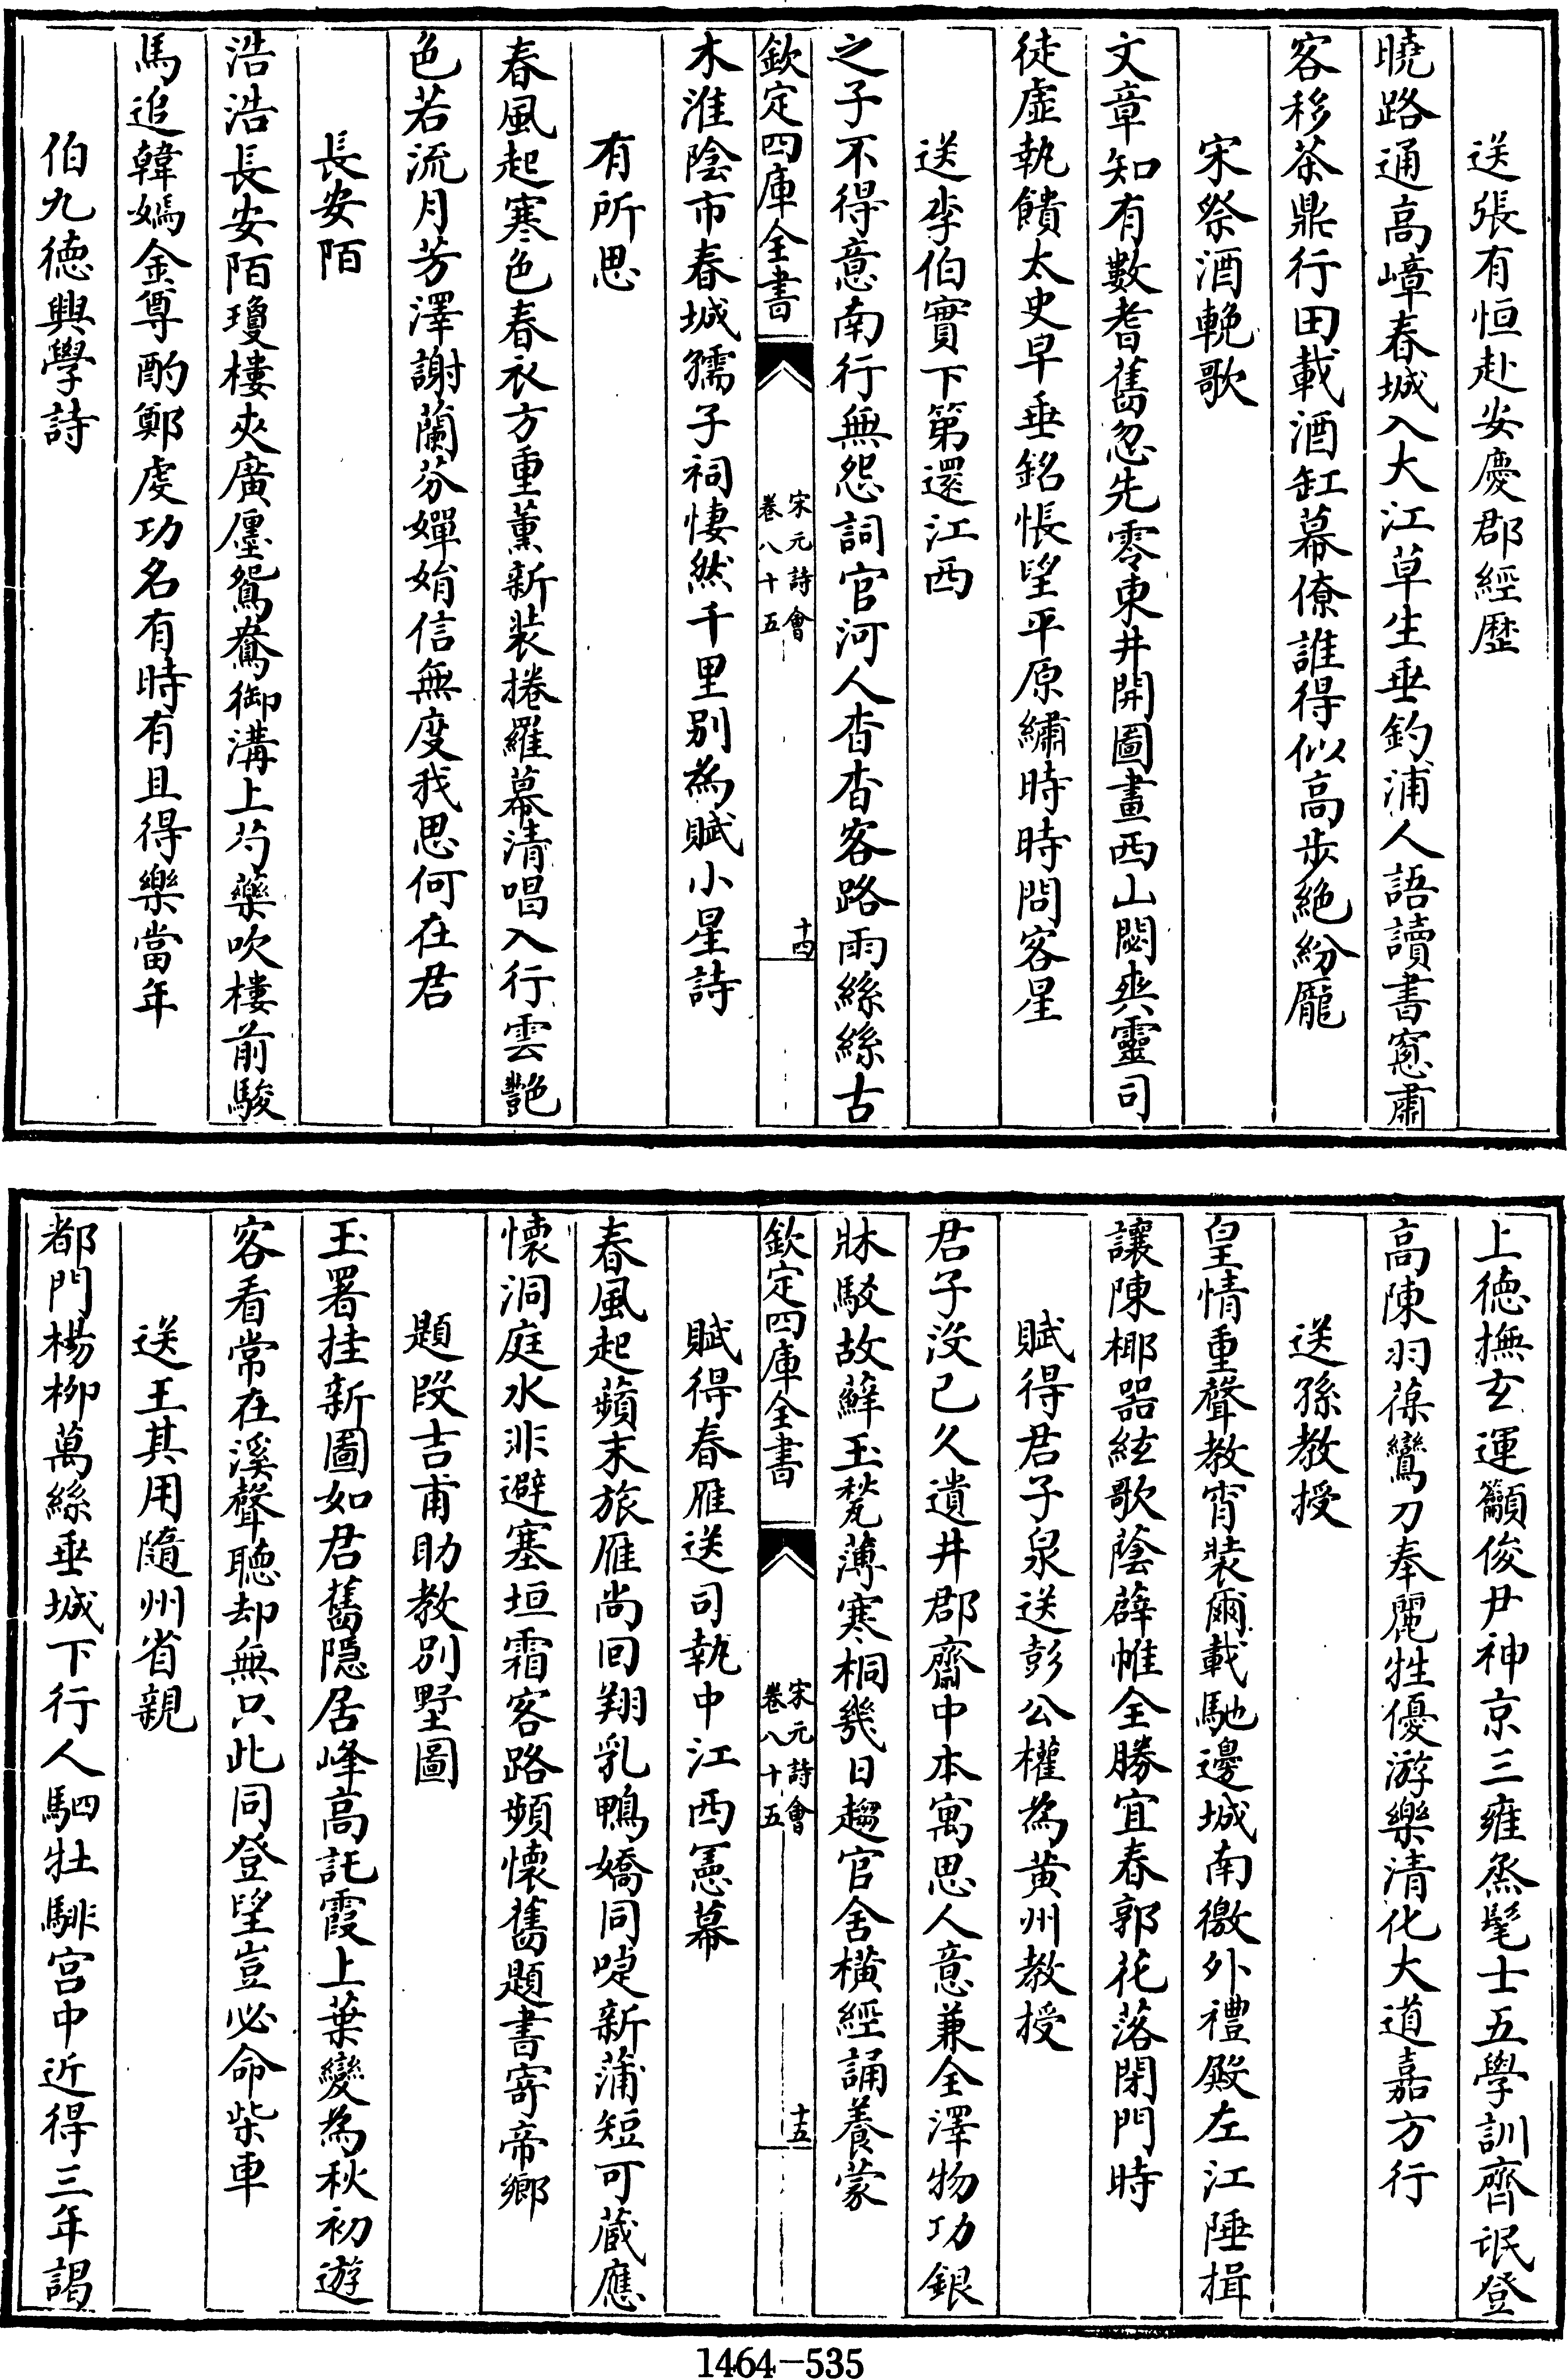 送張有恒赴安慶郡經歷
曉路通高嶂春城入大江草生垂釣浦人語讀書窓肅
客移茶鼎行田載酒缸幕僚誰得似高步絶紛厖
宋祭酒輓歌
文章知有數耆舊忽先零東井開圖畫西山閟爽靈司
徒虛執饋太史早垂銘悵望平原繡時時問客星
送李伯實下第還江西
之子不得意南行無怨詞官河人杳杳客路雨絲絲古
欽定四庫全書
宋元詩會
卷八十五
十四
木淮陰市春城孺子祠悽然千里别為賦小星詩
有所思
春風起寒色春衣方重薰新裝捲羅幕清唱入行雲艷
色若流月芳澤謝蘭芬嬋娟信無度我思何在君
長安陌
浩浩長安陌瓊樓夾廣廛鴛鴦御溝上芍藥吹樓前駿
馬追韓嫣金尊酌鄭虔功名有時有且得樂當年
伯九德興學詩
上德撫玄運籲俊尹神京三雍烝髦士五學訓齊氓登
高陳羽葆鸞刀奉麗牲優游樂清化大道嘉方行
送孫教授
皇情重聲教宵裝爾載馳邊城南徼外禮殿左江陲揖
讓陳椰器絃歌蔭薜帷全勝宜春郭花落閉門時
賦得君子泉送彭公權為黄州教授
君子沒已久遺井郡齋中本寓思人意兼全澤物功銀
牀駁故蘚玉甃薄寒桐幾日趨官舍横經誦養蒙
欽定四庫全書
宋元詩會
卷八十五
十五
賦得春雁送司執中江西憲幕
春風起蘋末旅雁尚回翔乳鴨嬌同唼新蒲短可蔵應
懷洞庭水非避塞垣霜客路頻懷舊題書寄帝鄉
題段吉甫助教别墅圖
玉署挂新圖如君舊隠居峰高託霞上葉變為秋初遊
客看常在溪聲聽却無只此同登望豈必命柴車
送王其用隨州省親
都門楊柳萬絲垂城下行人駟牡騑宫中近得三年謁
1464-535